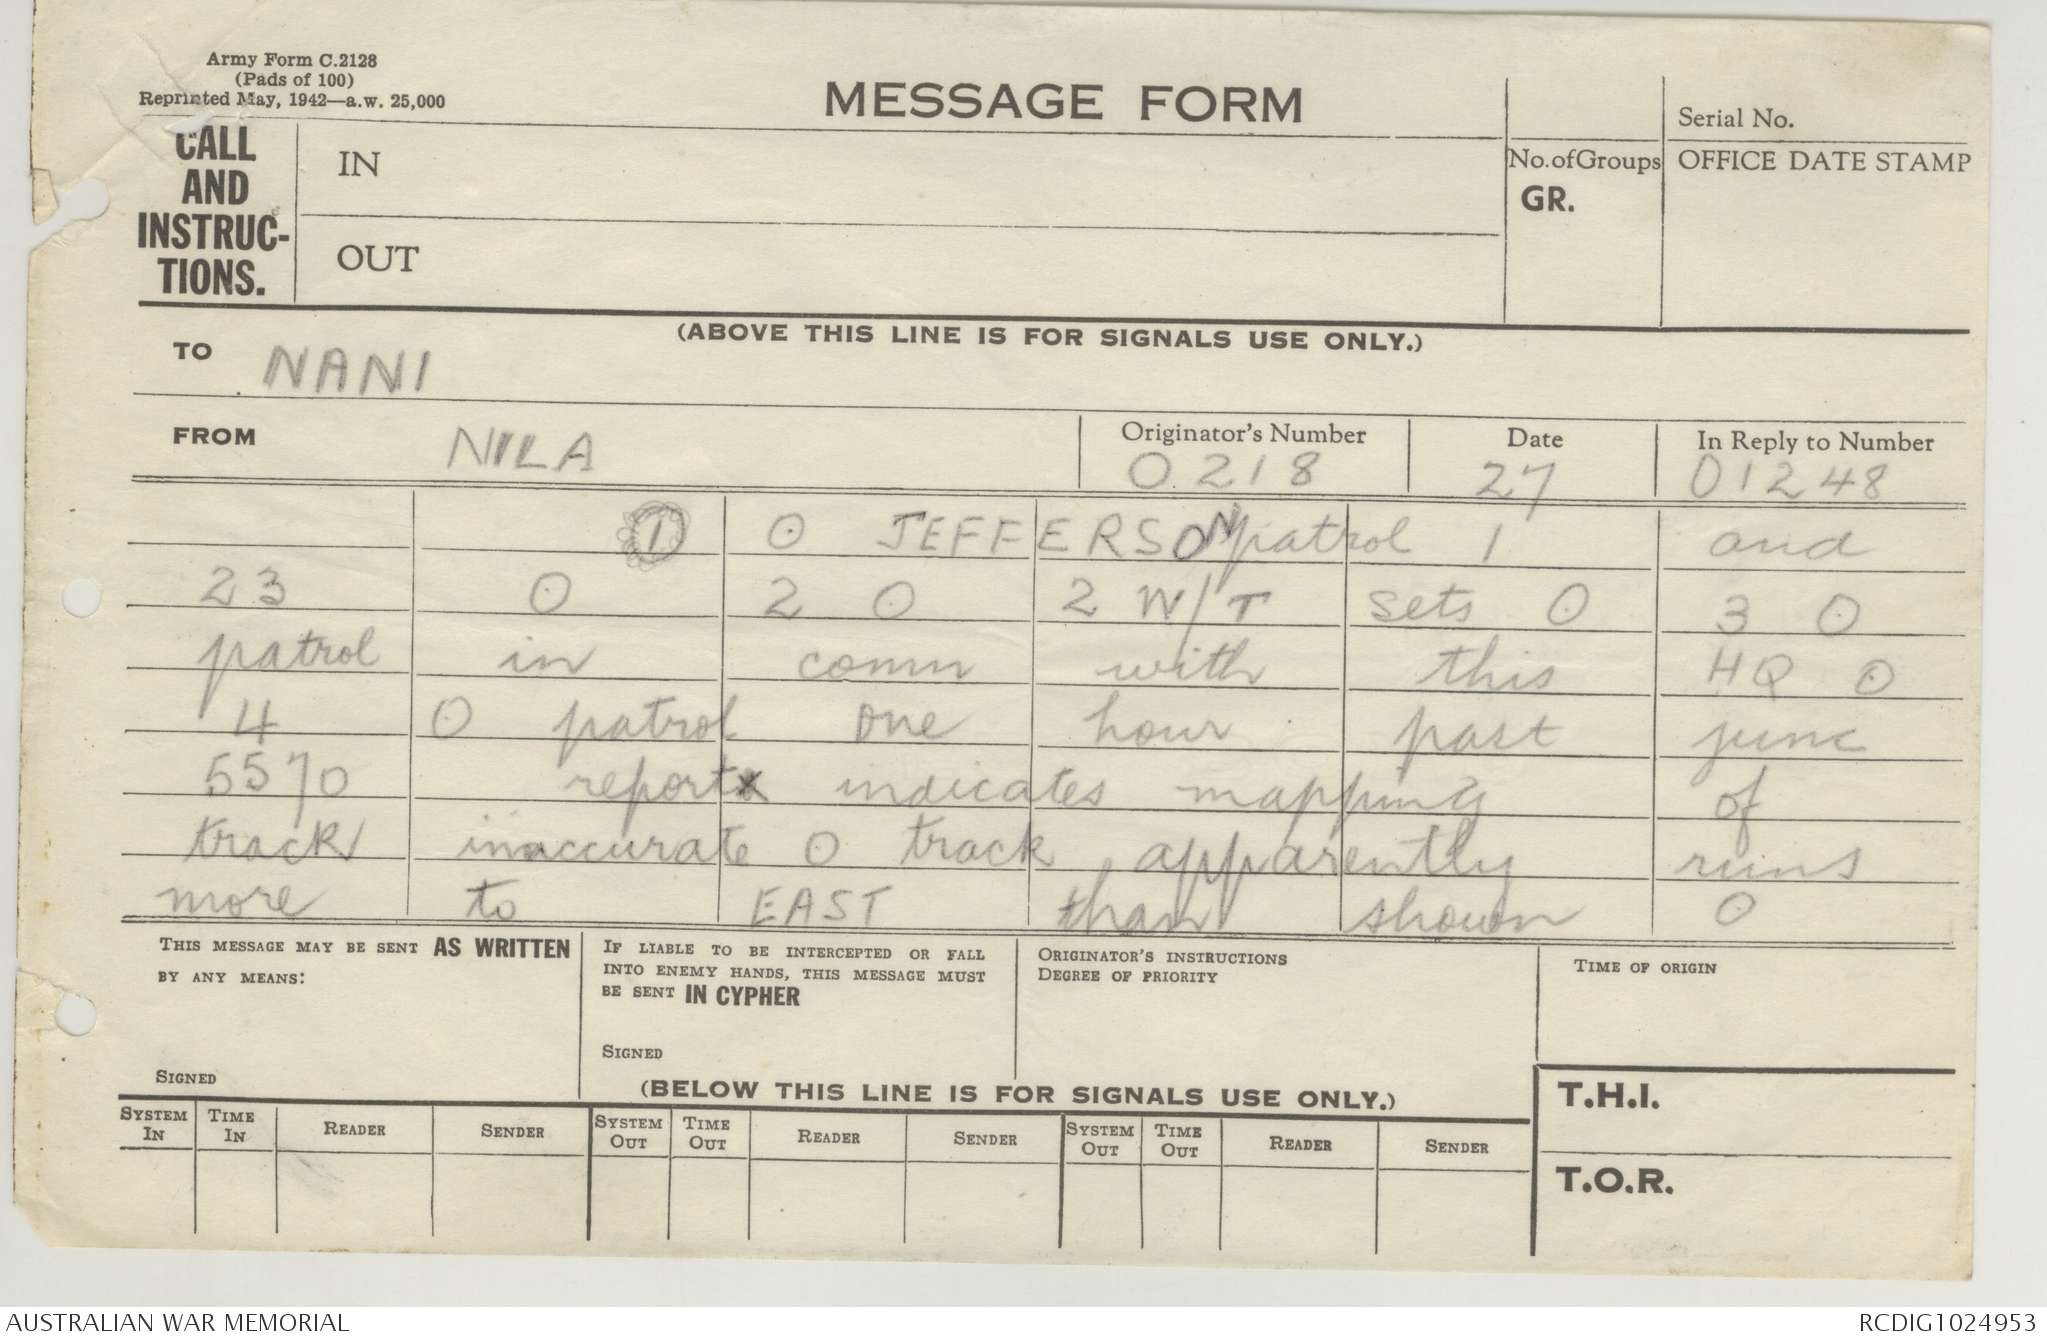 Army Form C.2128
(Pads of 100)
Reprinted May, 1942—a.w. 25,000
MESSAGE FORM
Serial No.
CALL AND INSTRUC-TIONS.
IN
OUT
No. of Groups
GR.
OFFICE DATE STAMP
(ABOVE THIS LINE IS FOR SIGNALS USE ONLY.)
TO NANI
FROM NILA
Originator's Number 0218
Date 27
In Reply to Number 01248
1 ⊙ JEFFERSON patrol 1 and
23 ⊙ 2 ⊙ 2 W/T sets ⊙ 3 ⊙
patrol in comm with this HQ ⊙
4 ⊙ patrol one hour past junc
5570 report indicates mapping of
track inaccurate ⊙ track apparently runs
more to EAST than shown ⊙
THIS MESSAGE MAY BE SENT AS WRITTEN
BY ANY MEANS:
SIGNED
IF LIABLE TO BE INTERCEPTED OR FALL
INTO ENEMY HANDS, THIS MESSAGE MUST
BE SENT IN CYPHER
SIGNED
ORIGINATOR'S INSTRUCTIONS
DEGREE OF PRIORITY
TIME OF ORIGIN
(BELOW THIS LINE IS FOR SIGNALS USE ONLY.)
T.H.I.
T.O.R.
SYSTEM IN TIME IN READER SENDER SYSTEM OUT TIME OUT READER SENDER SYSTEM OUT TIME OUT READER SENDER
AUSTRALIAN WAR MEMORIAL
RCDIG1024953